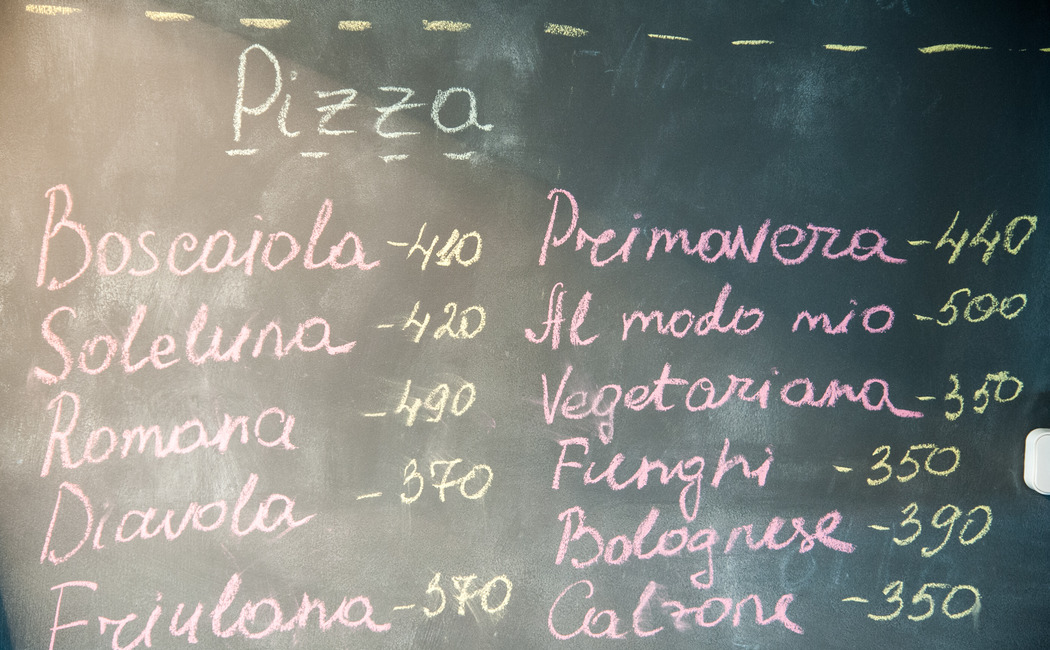 Pizza
Boscaiola - 410
Soleluna - 420
Romana - 490
Diavola - 370
Friulana - 370
Primavera - 440
Al modo mio - 500
Vegetariana - 350
Funghi - 350
Bolognese - 390
Calzone - 350